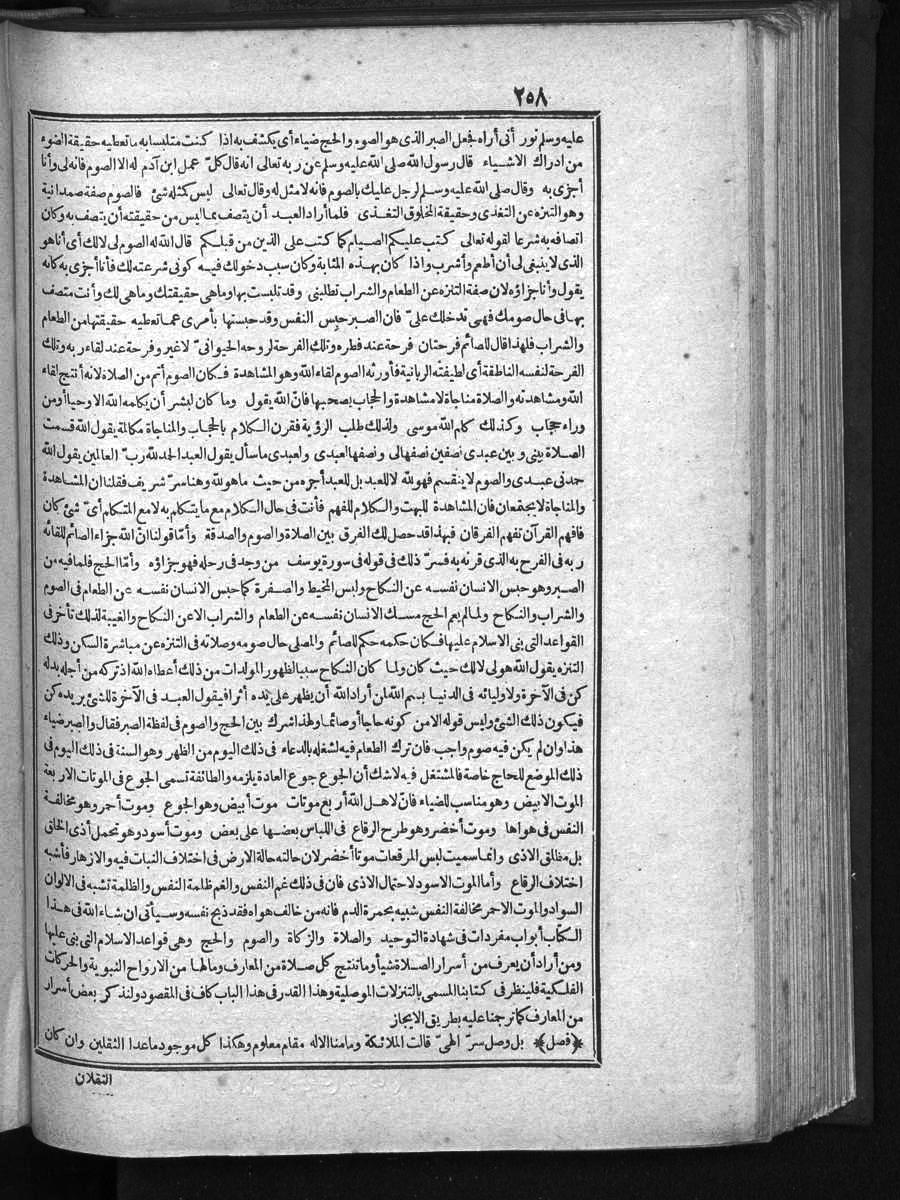 ٢٥٨
عليه وسلم نور أنى أراه فجعل الصبر الذى هو الصوم والحج ضياء أى يكشف به اذا كنت متلبسا به ما تعطيه حقيقة الضوء
من ادراك الاشياء قال رسول الله صلى الله عليه وسلم عن ربه تعالى انه قال كلّ عمل ابن آدم له الا الصوم فانه لى وأنا
أجزى به وقال صلى الله عليه وسلم لرجل عليك بالصوم فانه لا مثل له وقال تعالى ليس كمثله شئ فالصوم صفة صمدانية
وهو التنزه عن التغذى وحقيقة المخلوق التغذى فلما أراد العبد أن يتصف بما ليس من حقيقته أن يتصف به وكان
اتصافه به شرعا لقوله تعالى كتب عليكم الصيام كما كتب على الذين من قبلكم قال الله له الصوم لى لا لك أى أنا هو
الذى لا ينبغى لى أن أطعم وأشرب واذا كان بهذه المثابة وكان سبب دخولك فيه كونى شرعته لك فأنا أجزى به كانه
يقول وأنا جزاؤه لان صفة التنزه عن الطعام والشراب تطلبنى وقد تلبست بها وما هى حقيقتك وما هى لك وأنت متصف
بها فى حال صومك فهى تدخلك علىّ فان الصبر حبس النفس وقد حبستها بأمرى عما تعطيه حقيقتها من الطعام
والشراب فلهذا قال للصائم فرحتان فرحة عند فطره وتلك الفرحة لروحه الحيوانىّ لا غير وفرحة عند لقاء ربه وتلك
الفرحة لنفسه الناطقة أى لطيفته الربانية فأورثه الصوم لقاء الله وهو المشاهدة فكان الصوم أتم من الصلاة لانه أنتج لقاء
الله ومشاهدته والصلاة مناجاة لا مشاهدة والحجاب يصحبها فانّ الله يقول وما كان لبشر أن يكلمه الله الا وحيا أو من
وراء حجاب وكذلك كلم الله موسى ولذلك طلب الرؤية فقرن الكلام بالحجاب والمناجاة مكالمة يقول الله قسمت
الصلاة بينى وبين عبدى نصفين نصفها لى ونصفها لعبدى ولعبدى ما سأل يقول العبد الحمد لله ربّ العالمين يقول الله
حمدنى عبدى والصوم لا ينقسم فهو لله لا للعبد بل للعبد أجره من حيث ما هو لله وهنا سرّ شريف فقلنا ان المشاهدة
والمناجاة لا يجتمعان فان المشاهدة للبهت والكلام للفهم فأنت فى حال الكلام مع ما يتكلم به لا مع المتكلم أىّ شئ كان
فافهم القرآن تفهم الفرقان فبهذا قد حصل لك الفرق بين الصلاة والصوم والصدقة وأمّا قولنا انّ الله جزاء الصائم للقائه
ربه فى الفرح به الذى قرنه به فسرّ ذلك فى قوله فى سورة يوسف من وجد فى رحله فهو جزاؤه وأمّا الحج فلما فيه من
الصبر وهو حبس الانسان نفسه عن النكاح ولبس المخيط والصفرة كما حبس الانسان نفسه عن الطعام فى الصوم
والشراب والنكاح ولما لم يعم الحج مسك الانسان نفسه عن الطعام والشراب الا عن النكاح والغيبة لذلك تأخر فى
القواعد التى بنى الاسلام عليها فكان حكمه حكم للصائم والمصلى حال صومه وصلاته فى التنزه عن مباشرة السكن وذلك
التنزه يقول الله هو لى لا لك حيث كان ولما كان النكاح سببا لظهور المولدات من ذلك أعطاه الله اذ تركه من أجله بدله
كن فى الآخرة ولاوليائه فى الدنيا بسم الله لمن أراد الله أن يظهر على يده أثرا فيقول العبد فى الآخرة للشئ يريده كن
فيكون ذلك الشئ وليس قوله الا من كونه حاجا أو صائما ولهذا شرك بين الحج والصوم فى لفظة الصبر فقال والصبر ضياء
هذا وان لم يكن فيه صوم واجب فان ترك الطعام فيه لشغله بالدعاء فى ذلك اليوم من الظهر وهو السنة فى ذلك اليوم فى
ذلك الموضع للحاج خاصة فالمشتغل فيه لا شك أن الجوع جوع العادة يلزمه والطائفة تسمى الجوع فى الموتات الاربعة
الموت الابيض وهو مناسب للضياء فانّ لاهل الله أربع موتات موت أبيض وهو الجوع وموت أحمر وهو مخالفة
النفس فى هواها وموت أخضر وهو طرح الرقاع فى اللباس بعضها على بعض وموت أسود وهو تحمل أذى الخلق
بل مطلق الاذى وانما سميت لبس المرقعات موتا أخضر لان حالته حالة الارض فى اختلاف النبات فيه والازهار فأشبه
اختلاف الرقاع وأما الموت الاسود لاحتمال الاذى فان فى ذلك غم النفس والغم ظلمة النفس والظلمة تشبه فى الالوان
السواد والموت الاحمر مخالفة النفس شبيه بحمرة الدم فانه من خالف هواه فقد ذبح نفسه وسيأتى ان شاء الله فى هذا
الكتاب أبواب مفردات فى شهادة التوحيد والصلاة والزكاة والصوم والحج وهى قواعد الاسلام التى بنى عليها
ومن أراد أن يعرف من أسرار الصلاة شيأ وما تنتج كل صلاة من المعارف وما لها من الارواح النبوية والحركات
الفلكية فلينظر فى كتابنا المسمى بالتنزلات الموصلية وهذا القدر فى هذا الباب كاف فى المقصود ولنذكر بعض أسرار
من المعارف كما ترجمنا عليه بطريق الايجاز
﴿فصل﴾ بل وصل سرّ الهىّ قالت الملائكة وما منا الا له مقام معلوم وهكذا كل موجود ما عدا الثقلين وان كان
الثقلان